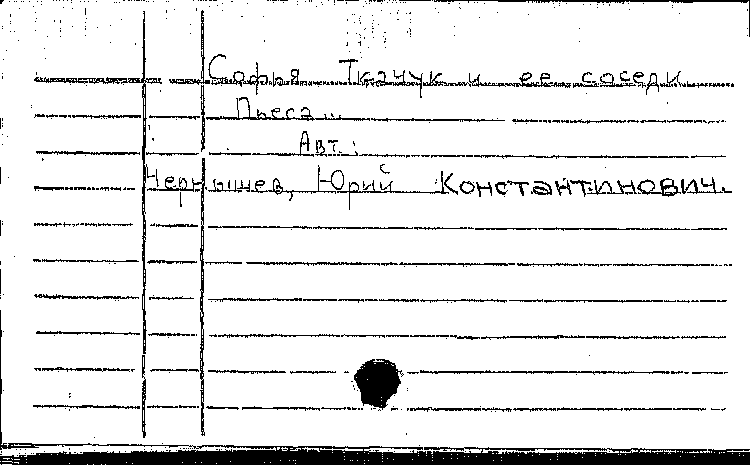 Софья Ткачук и ее соседи.
Пьеса...
Авт.:
Чернышев, Юрий Константинович.